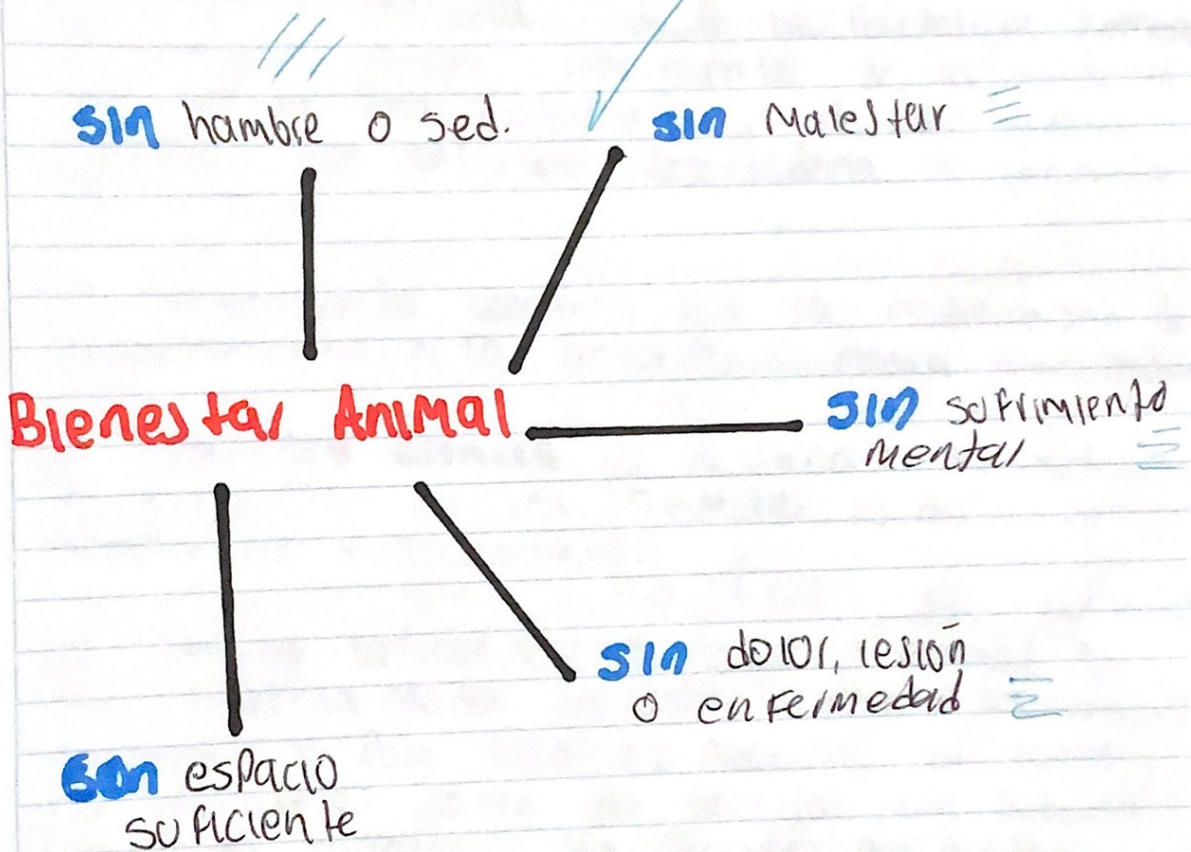 sin hambre o sed.
sin Malestar
Bienestar Animal
sin sufrimiento
mental
sin dolor, lesión
o enfermedad
con espacio
suficiente